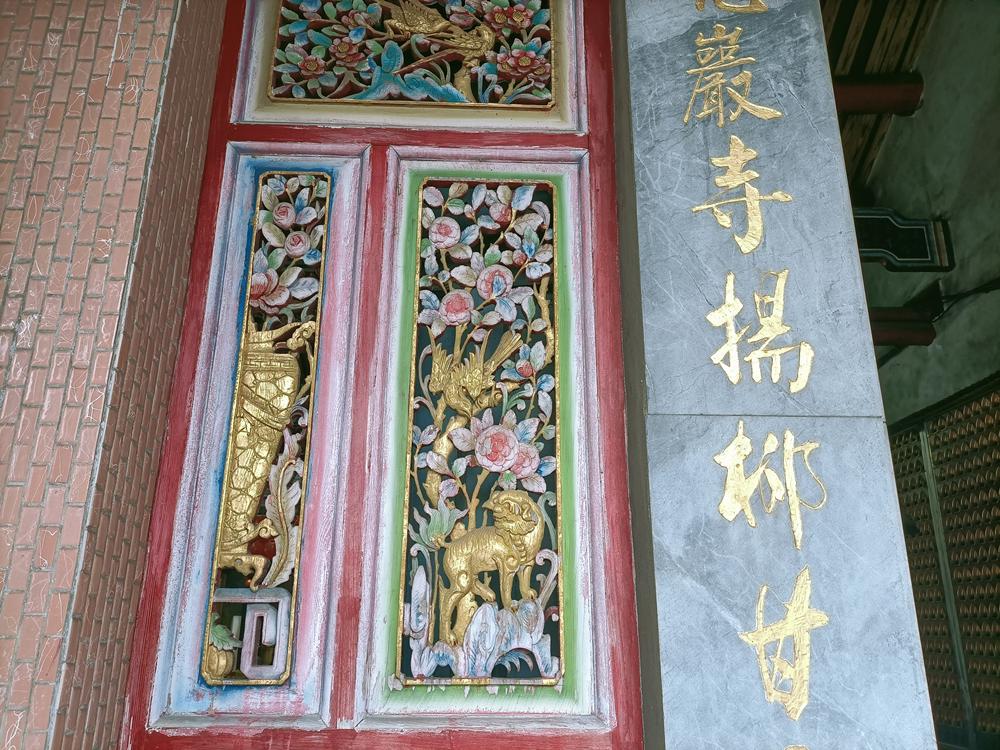 巖寺揚柳甘